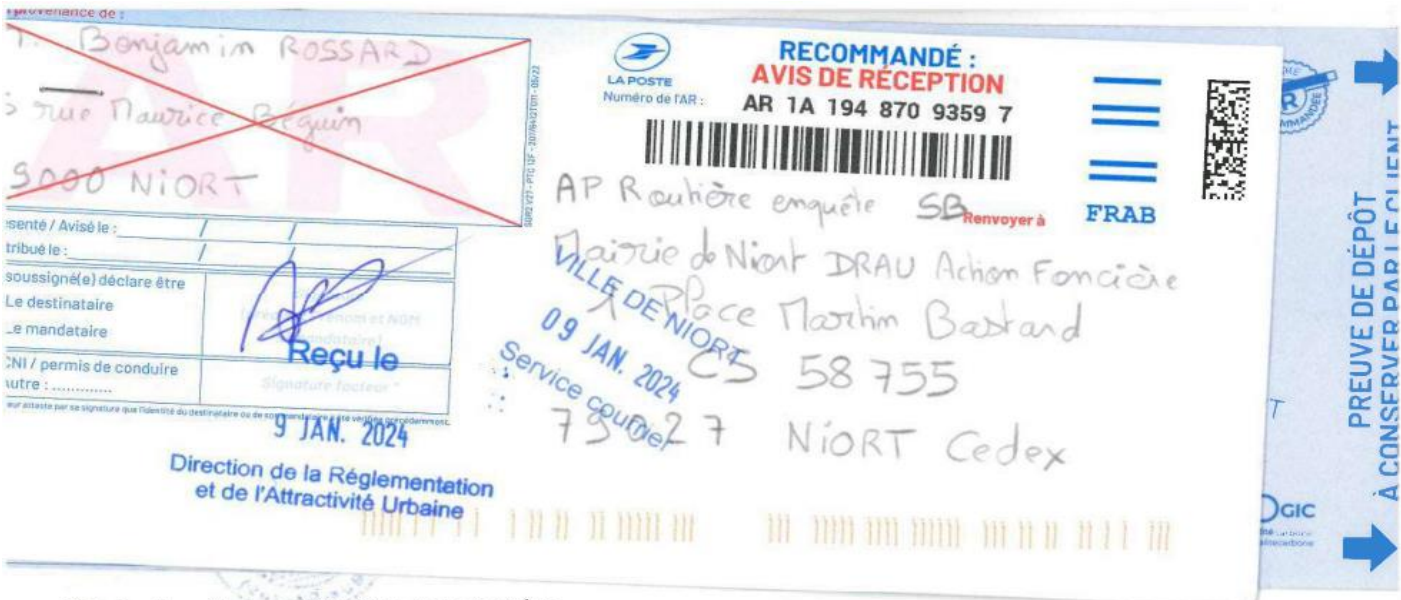 provenance de :
Benjamin ROSSARD
rue Maurice Béguin
9000 NIORT
AR
senté / Avisé le : / /
tribué le : / /
soussigné(e) déclare être
Le destinataire
Le mandataire
CNI / permis de conduire
autre : .............
Signature facteur *
Reçu le
9 JAN. 2024
Direction de la Réglementation
et de l'Attractivité Urbaine
LA POSTE
Numéro de l'AR :
RECOMMANDÉ :
AVIS DE RÉCEPTION
AR 1A 194 870 9359 7
FRAB
Renvoyer à
AP Routière enquête SB
Mairie de Niort DRAU Action Foncière
1 Place Martin Bastard
CS 58 755
79027 NIORT Cedex
VILLE DE NIORT
09 JAN. 2024
Service courrier
PREUVE DE DÉPÔT
À CONSERVER PAR LE CLIENT
GIC